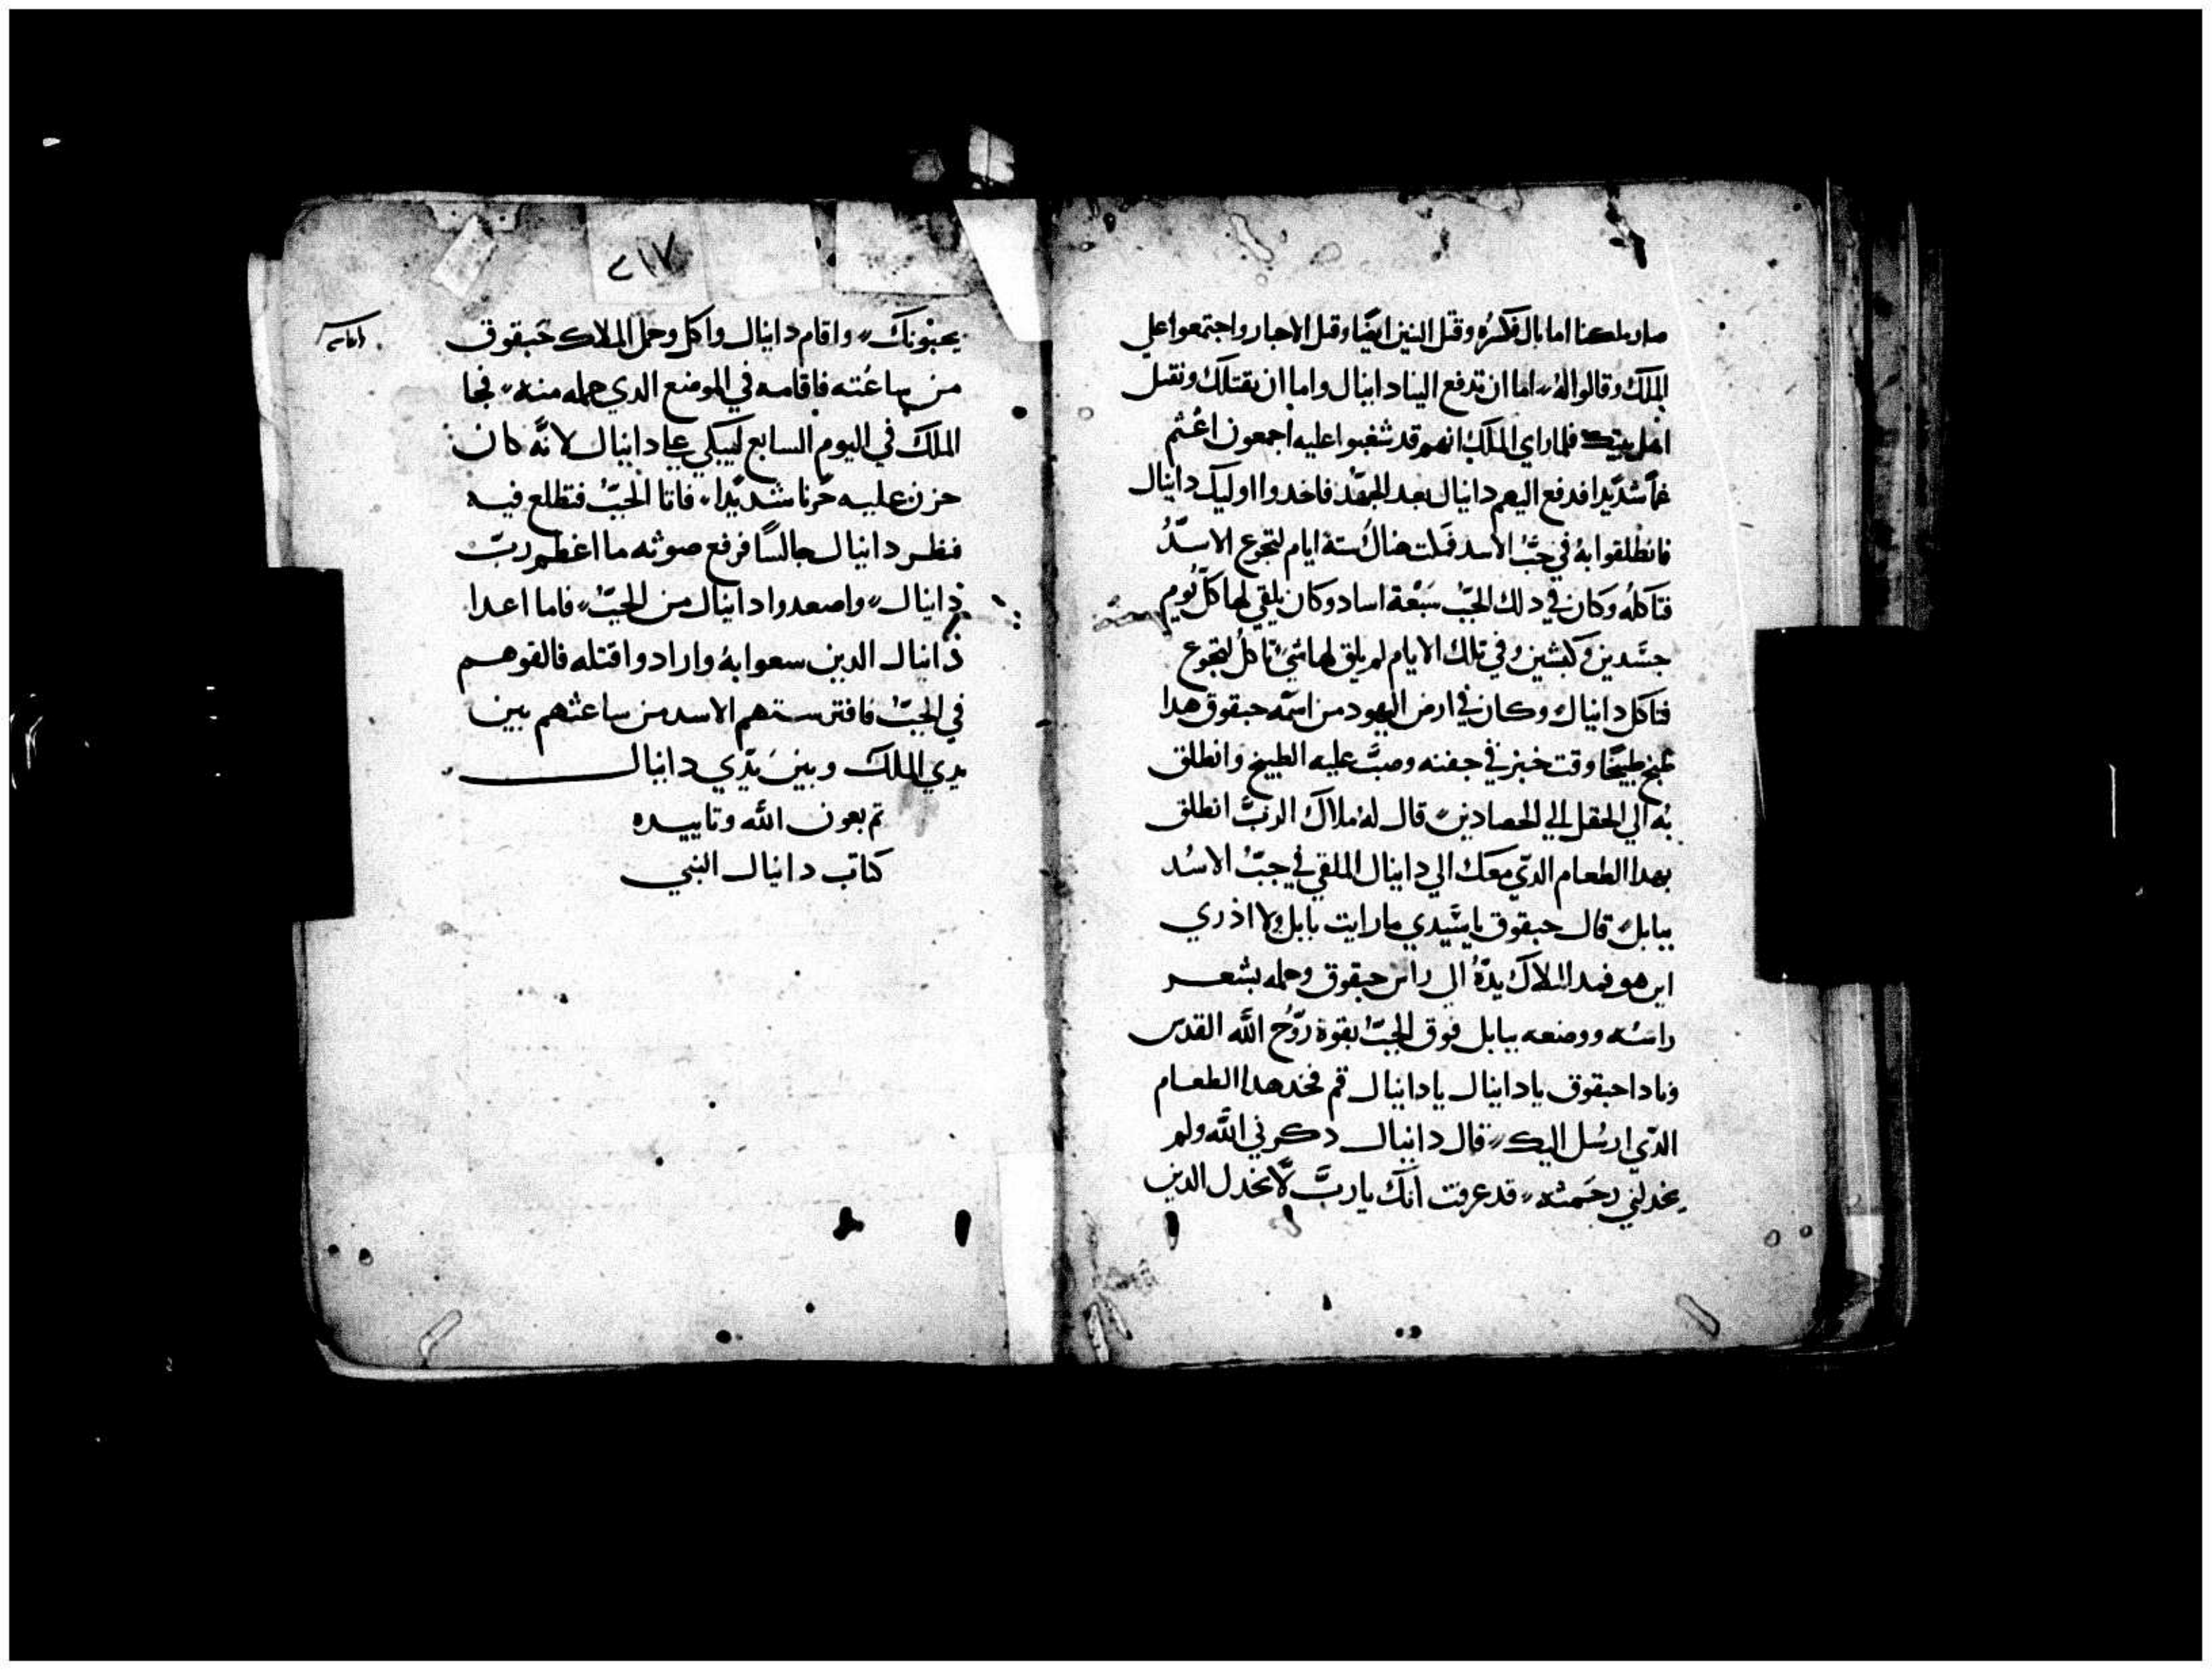 صار ملكنا اما بال فكسره وقتل التنين ايضا وقتل الاحبار واجتمعوا علي
الملك وقالوا له اما ان تدفع الينا دانيال واما ان نقتلك ونقتل
اهل بيتك فلما راي الملك انهم قد شغبوا عليه اجمعون اغتم
غما شديدا فدفع اليهم دانيال بعد الجهد فاخدوا اوليك دانيال
فانطلقوا به في جب الاسد فمكت هناك ستة ايام لتجوع الاسد
فتاكله وكان في دلك الجب سبعة اساد وكان يلقي لها كل يوم
جسدين وكبشين وفي تلك الايام لم يلق لها شي تاكل لتجوع
فتاكل دانيال وكان في ارض اليهود من اسمه حبقوق هدا
طبخ طبيخا وفت خبز في جفنه وصب عليه الطبيخ وانطلق
به الي الحقل الي الحصادين قال له ملاك الرب انطلق
بهدا الطعام الدي معك الي دانيال الملقي في جب الاسد
ببابل قال حبقوق يا سيدي ما رايت بابل ولا ادري
اين هو فمد الملاك يده الي راس حبقوق وحمله بشعر
راسه ووضعه ببابل فوق الجب بقوة روح الله القدس
ونادا حبقوق يا دانيال يا دانيال قم فخد هدا الطعام
الدي ارسل اليك قال دانيال دكرني الله ولم
يخدلني رحمته قد عرفت انك يا رب لا تخدل الدين
٢١٧
يحبونك واقام دانيال واكل وحمل الملاك حبقوق
من ساعته فاقامه في الموضع الدي حمله منه فجا
الملك في اليوم السابع ليبكي علي دانيال لانه كان
حزن عليه حزنا شديدا فاتا الجب فتطلع فيه
فنظر دانيال جالسا فرفع صوته ما اعظم رب
دانيال واصعدوا دانيال من الجب فاما اعدا
دانيال الدين سعوا به وارادوا قتله فالقوهم
في الجب فافترستهم الاسد من ساعتهم بين
يدي الملك وبين يدي دانيال
تم بعون الله وتاييده
كتاب دانيال النبي